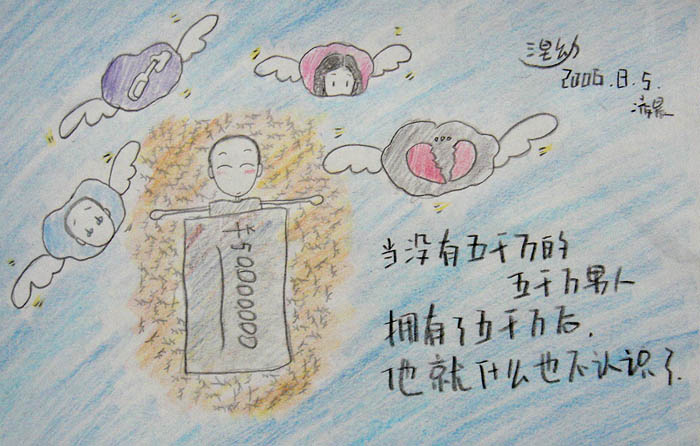 2006.8.5.
凌晨
¥50000000
当没有五千万的
五千万男人
拥有了五千万后,
他就什么也不认识了.